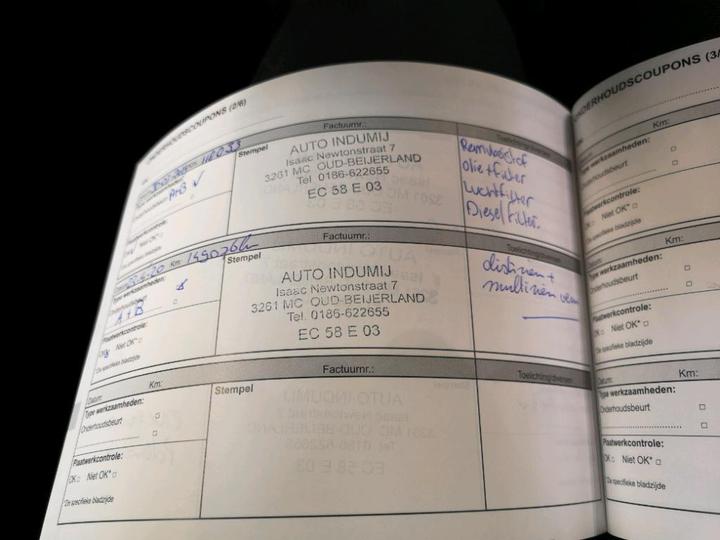 ONDERHOUDSCOUPONS (2/6)
Km: 112033
A+B ✓
Plaatwerkcontrole:
OK Niet OK*
*De specifieke bladzijde
Stempel
Factuurnr.:
AUTO INDUMIJ
Isaac Newtonstraat 7
3261 MC OUD-BEIJERLAND
Tel. 0186-622655
EC 58 E 03
Toelichting/diversen
Remvloeistof
Olie+filter
Luchtfilter
Dieselfilter.
Km:
Type werkzaamheden:
Onderhoudsbeurt
A + B
Plaatwerkcontrole:
OK Niet OK*
*De specifieke bladzijde
Stempel
Factuurnr.:
AUTO INDUMIJ
Isaac Newtonstraat 7
3261 MC OUD-BEIJERLAND
Tel. 0186-622655
EC 58 E 03
Toelichting/diversen
multiriem
Datum: Km:
Type werkzaamheden:
Onderhoudsbeurt
Plaatwerkcontrole:
OK Niet OK*
*De specifieke bladzijde
Stempel
Factuurnr.:
Toelichting/diversen
ONDERHOUDSCOUPONS (3/
Datum: Km:
Type werkzaamheden:
Onderhoudsbeurt
Plaatwerkcontrole:
OK Niet OK*
*De specifieke bladzijde
Datum: Km:
Type werkzaamheden:
Onderhoudsbeurt
Plaatwerkcontrole:
OK Niet OK*
*De specifieke bladzijde
Datum: Km:
Type werkzaamheden:
Onderhoudsbeurt
Plaatwerkcontrole:
OK Niet OK*
*De specifieke bladzijde